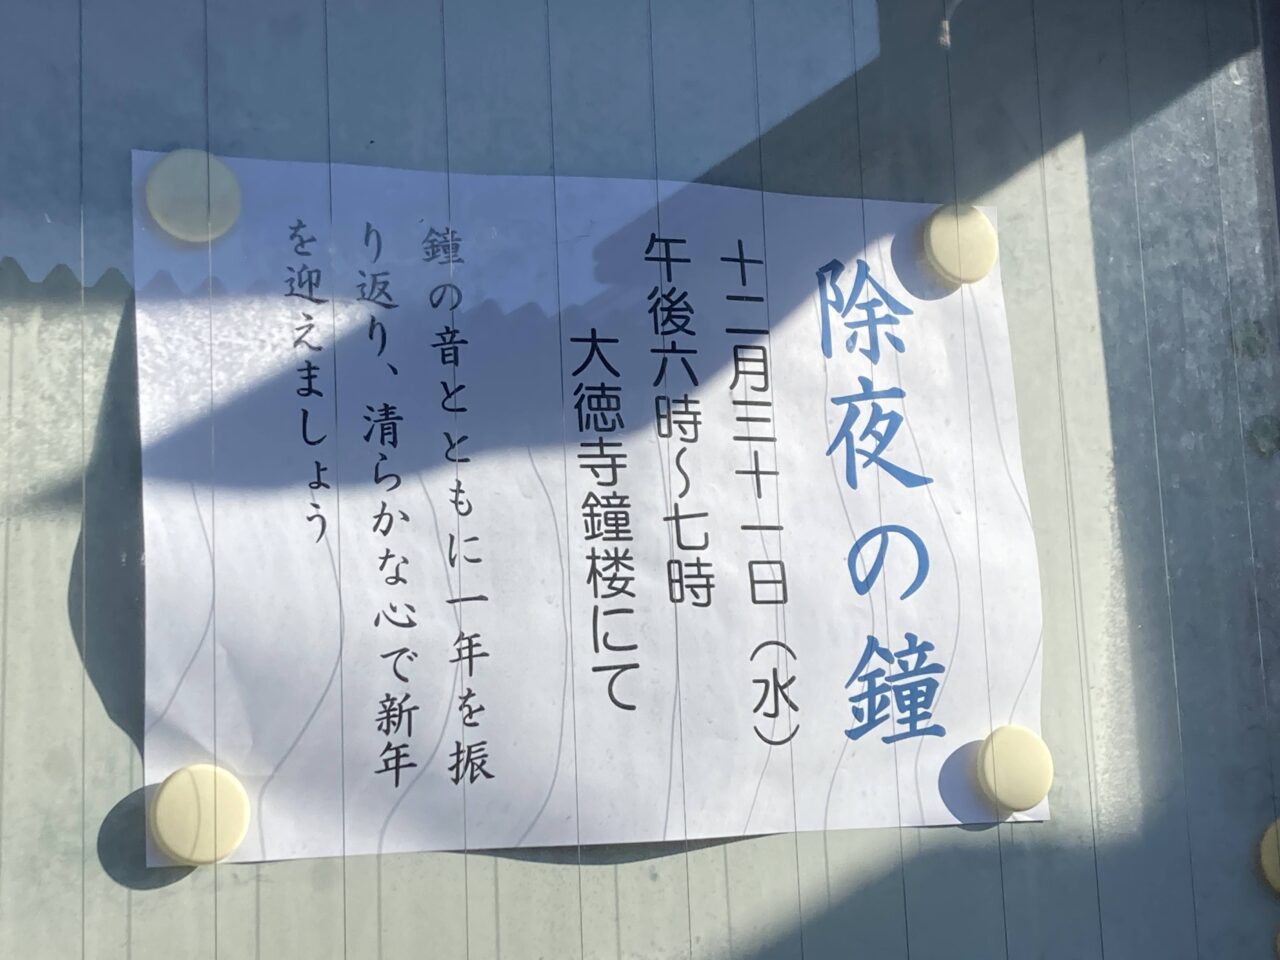 除夜の鐘
十二月三十一日（水）
午後六時～七時
大徳寺鐘楼にて
鐘の音とともに一年を振
り返り、清らかな心で新年
を迎えましょう